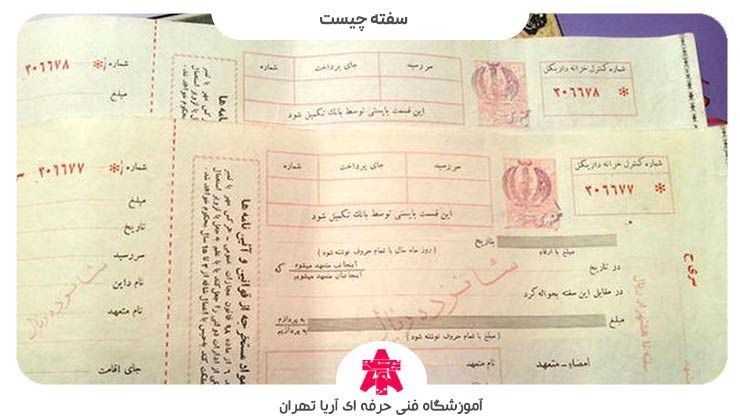 سفته چیست
شماره کنترل خزانه داری کل
* ۲۰۶۶۷۸
سررسید
جای پرداخت
شماره
این قسمت بایستی توسط بانک تکمیل شود
شماره * ۲۰۶۶۷۸
مبلغ
شماره کنترل خزانه داری کل
* ۲۰۶۶۷۷
سررسید
جای پرداخت
شماره
این قسمت بایستی توسط بانک تکمیل شود
سری ح
مبلغ با ارقام
بتاریخ
در تاریخ
( روز ماه سال با تمام حروف نوشته شود )
اینجانب متعهد میشوم
اینجانبان متعهد میشویم
که
در مقابل این سفته بحواله کرد
مبلغ
به پردازم
به پردازیم
( مبلغ با تمام حروف نوشته شود )
امضاء - متعهد
شانزده ریال
مواد مستخرجه از قوانین و آئین نامه ها
شماره * ۲۰۶۶۷۷
مبلغ
تاریخ
سررسید
نام داین
نام متعهد
جای اقامت
شانزده ریال
آموزشگاه فنی حرفه ای آریا تهران